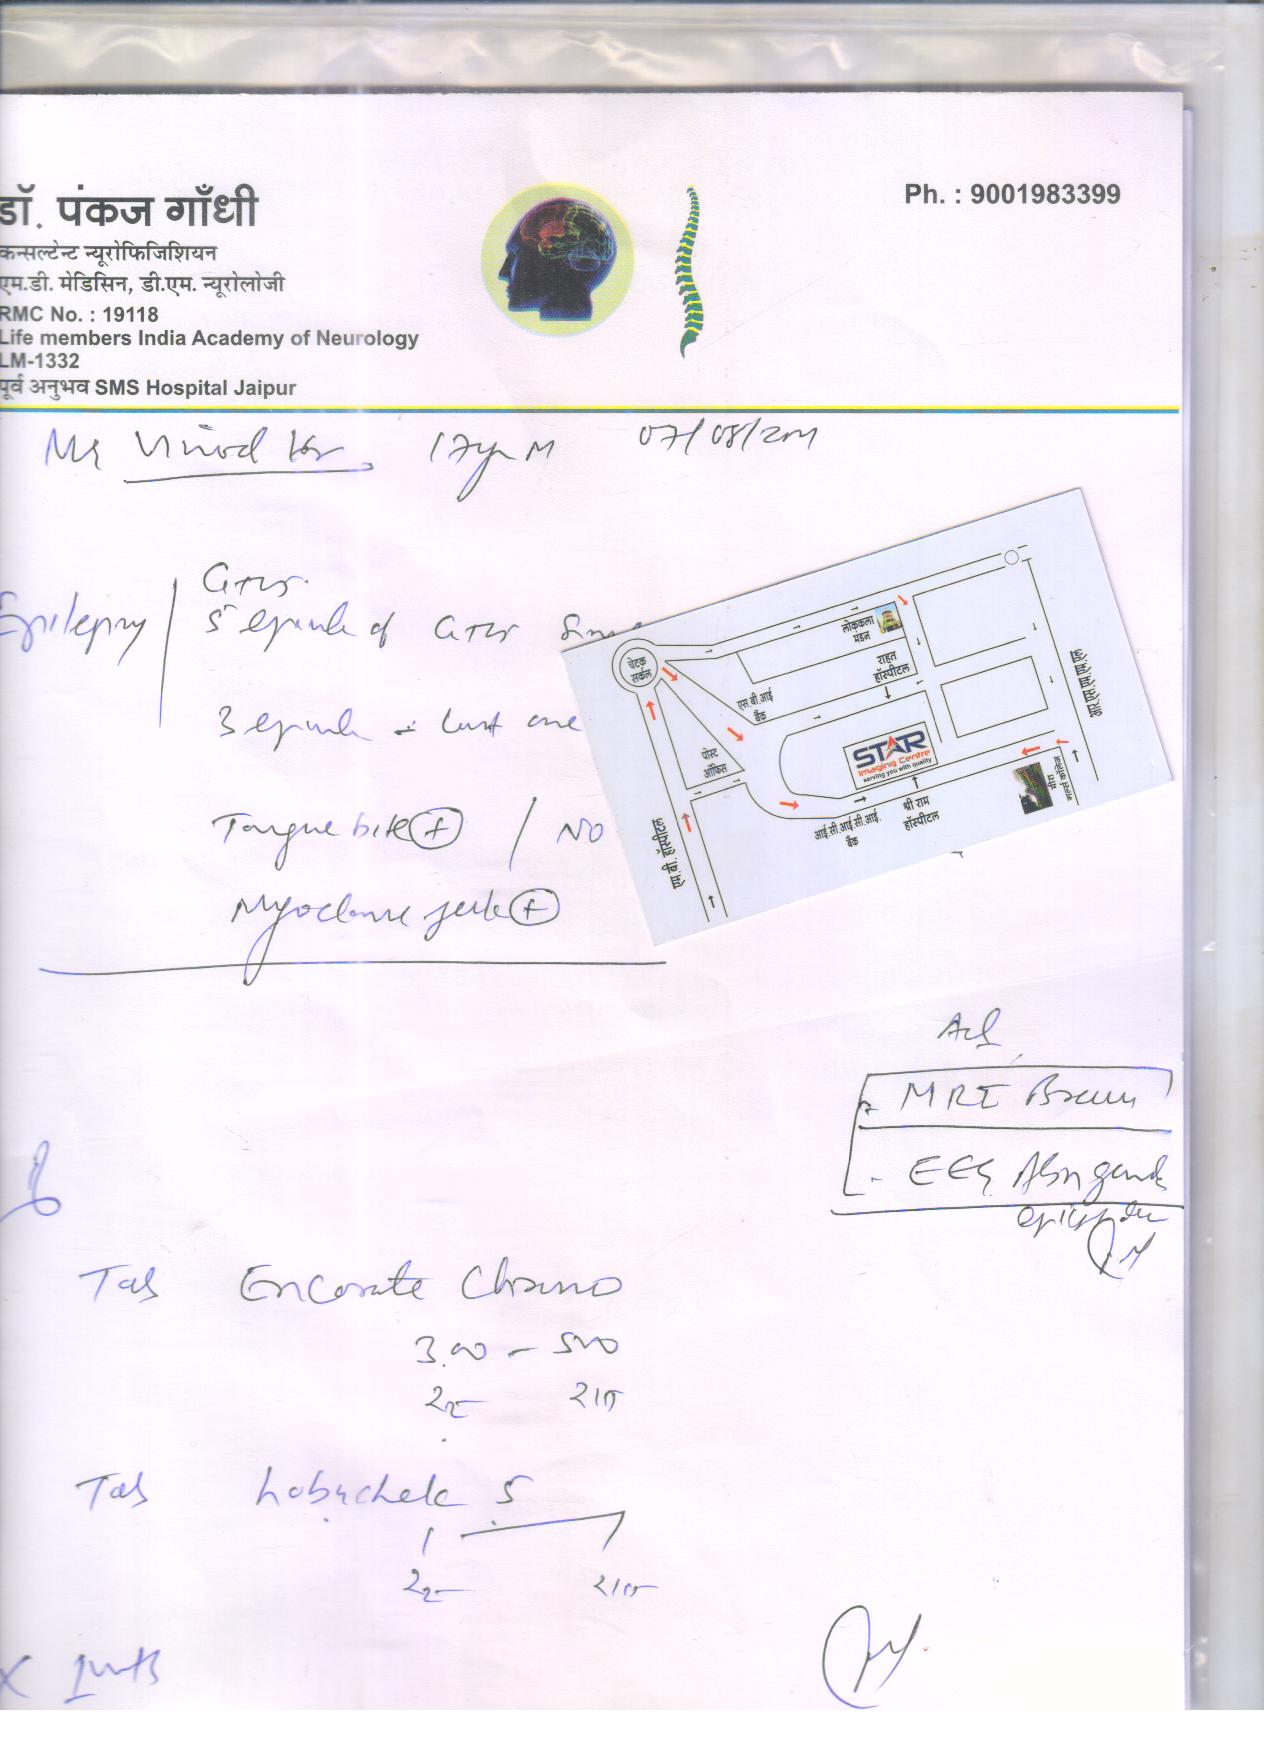 डॉ. पंकज गाँधी
कन्सल्टेन्ट न्यूरोफिजिशियन
एम.डी. मेडिसिन, डी.एम. न्यूरोलोजी
RMC No. : 19118
Life members India Academy of Neurology
LM-1332
पूर्व अनुभव SMS Hospital Jaipur
Ph. : 9001983399
Mr Vinod Kr, 17yr M 07/08/2011
Epilepsy
GTCS
5 episode of GTCS
3 episode - Last one
Tongue bite + / NO
Myoclonic jerk +
चेटक सर्कल
लोककला मंडल
राहत हॉस्पीटल
एस.बी.आई बैंक
पोस्ट ऑफिस
STAR
Imaging Centre
serving you with quality
श्री राम हॉस्पीटल
आई.सी.आई.सी.आई. बैंक
एम.बी. हॉस्पीटल
मीरा गर्ल्स कॉलेज
आर.एस.एम.एम.एल
Adv
- MRI Brain
- EEG
Tab Encorate Chrono
300 - 500
Tab Lobachek 5